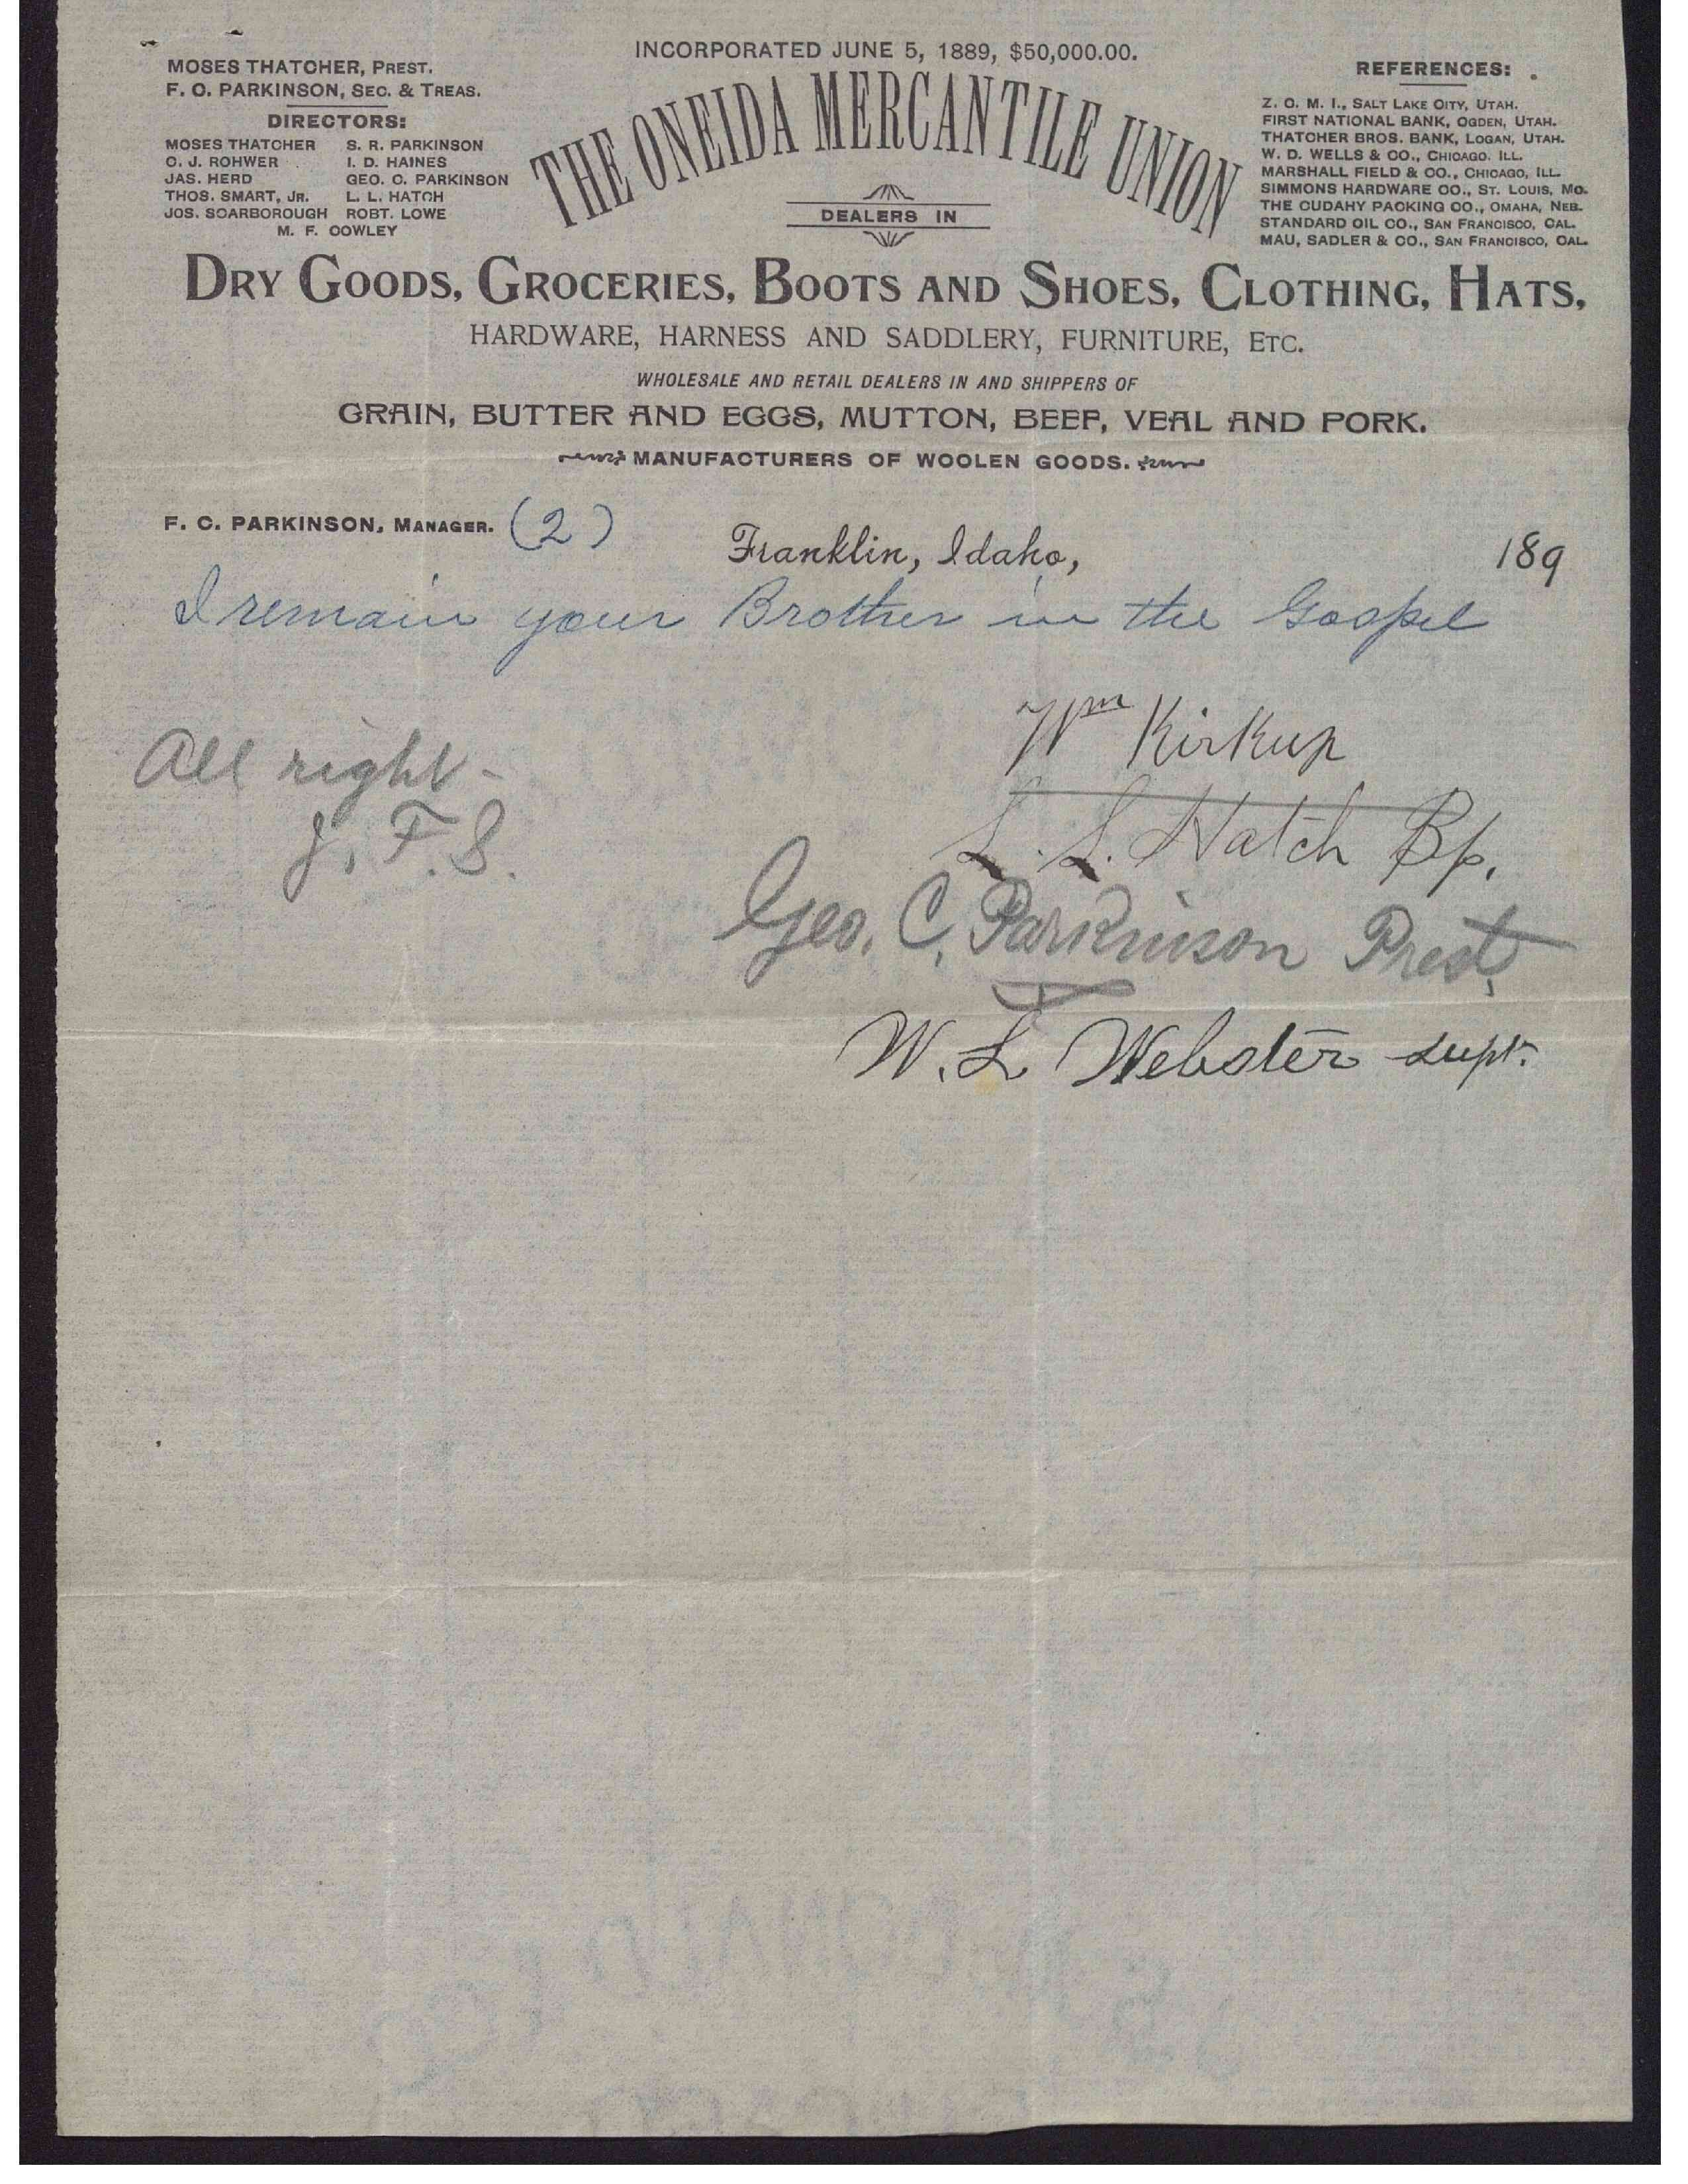 INCORPORATED JUNE 5, 1889, $50,000.00.
MOSES THATCHER, PREST.
F. C. PARKINSON, SEC. & TREAS.
DIRECTORS:
MOSES THATCHER S. R. PARKINSON
C. J. ROHWER I. D. HAINES
JAS. HERD GEO. C. PARKINSON
THOS. SMART, JR. L. L. HATCH
JOS. SCARBOROUGH ROBT. LOWE
M. F. COWLEY
THE ONEIDA MERCANTILE UNION
DEALERS IN
REFERENCES:
Z. C. M. I., SALT LAKE CITY, UTAH.
FIRST NATIONAL BANK, OGDEN, UTAH.
THATCHER BROS. BANK, LOGAN, UTAH.
W. D. WELLS & CO., CHICAGO. ILL.
MARSHALL FIELD & CO., CHICAGO, ILL.
SIMMONS HARDWARE CO., ST. LOUIS, MO.
THE CUDAHY PACKING CO., OMAHA, NEB.
STANDARD OIL CO., SAN FRANCISCO, CAL.
MAU, SADLER & CO., SAN FRANCISCO, CAL.
DRY GOODS, GROCERIES, BOOTS AND SHOES, CLOTHING, HATS,
HARDWARE, HARNESS AND SADDLERY, FURNITURE, ETC.
WHOLESALE AND RETAIL DEALERS IN AND SHIPPERS OF
GRAIN, BUTTER AND EGGS, MUTTON, BEEF, VEAL AND PORK.
MANUFACTURERS OF WOOLEN GOODS.
F. C. PARKINSON, MANAGER. (2)
Franklin, Idaho, 189
I remain your Brother in the Gospel
Wm Kirkup
All right -
J. F. S.
L. L. Hatch Bp.
Geo. C. Parkinson Prest.
W. L Webster supt.